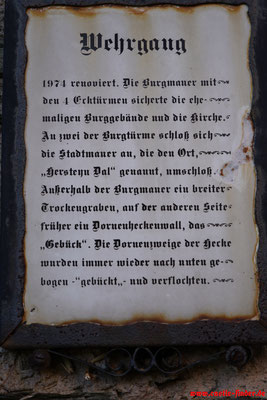 Wehrgang
1974 renoviert. Die Burgmauer mit
den 4 Ecktürmen sicherte die ehe-
maligen Burggebäude und die Kirche.
An zwei der Burgtürme schloß sich
die Stadtmauer an, die den Ort,
„Hersteyn Dal" genannt, umschloß.
Außerhalb der Burgmauer ein breiter
Trockengraben, auf der anderen Seite
früher ein Dornenheckenwall, das
„Gebück". Die Dornenzweige der Hecke
wurden immer wieder nach unten ge-
bogen -"gebückt„- und verflochten.